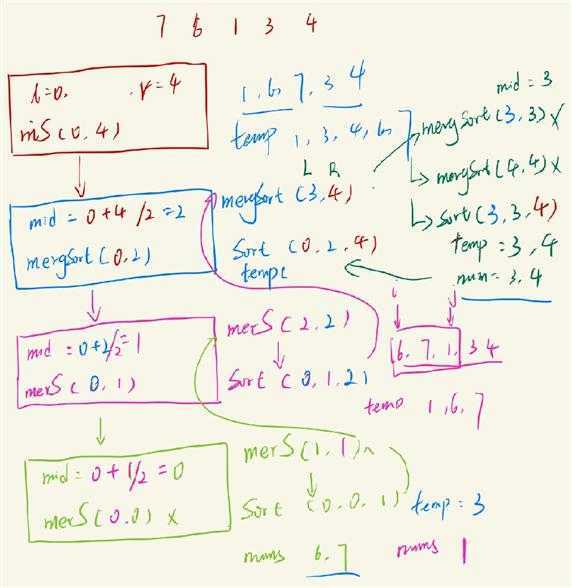 7 6 1 3 4
l=0, r=4
mS(0,4)
mid = 0+4/2=2
mergSort(0,2)
mid = 0+2/2=1
merS(0,1)
mid = 0+1/2=0
merS(0.0) x
1,6,7,3 4
temp 1,3,4,6,7
L R
mergSort(3,4)
Sort (0,2,4)
temp(
merS(2,2)
Sort (0,1,2)
merS(1,1)
Sort (0.0.1)
nums 6.7
mid = 3
mergSort(3,3) x
mergSort(4,4) x
Sort(3,3,4)
temp = 3,4
num = 3,4
i j
6.7,1,3 4
temp 1,6,7
temp = 3
nums 1